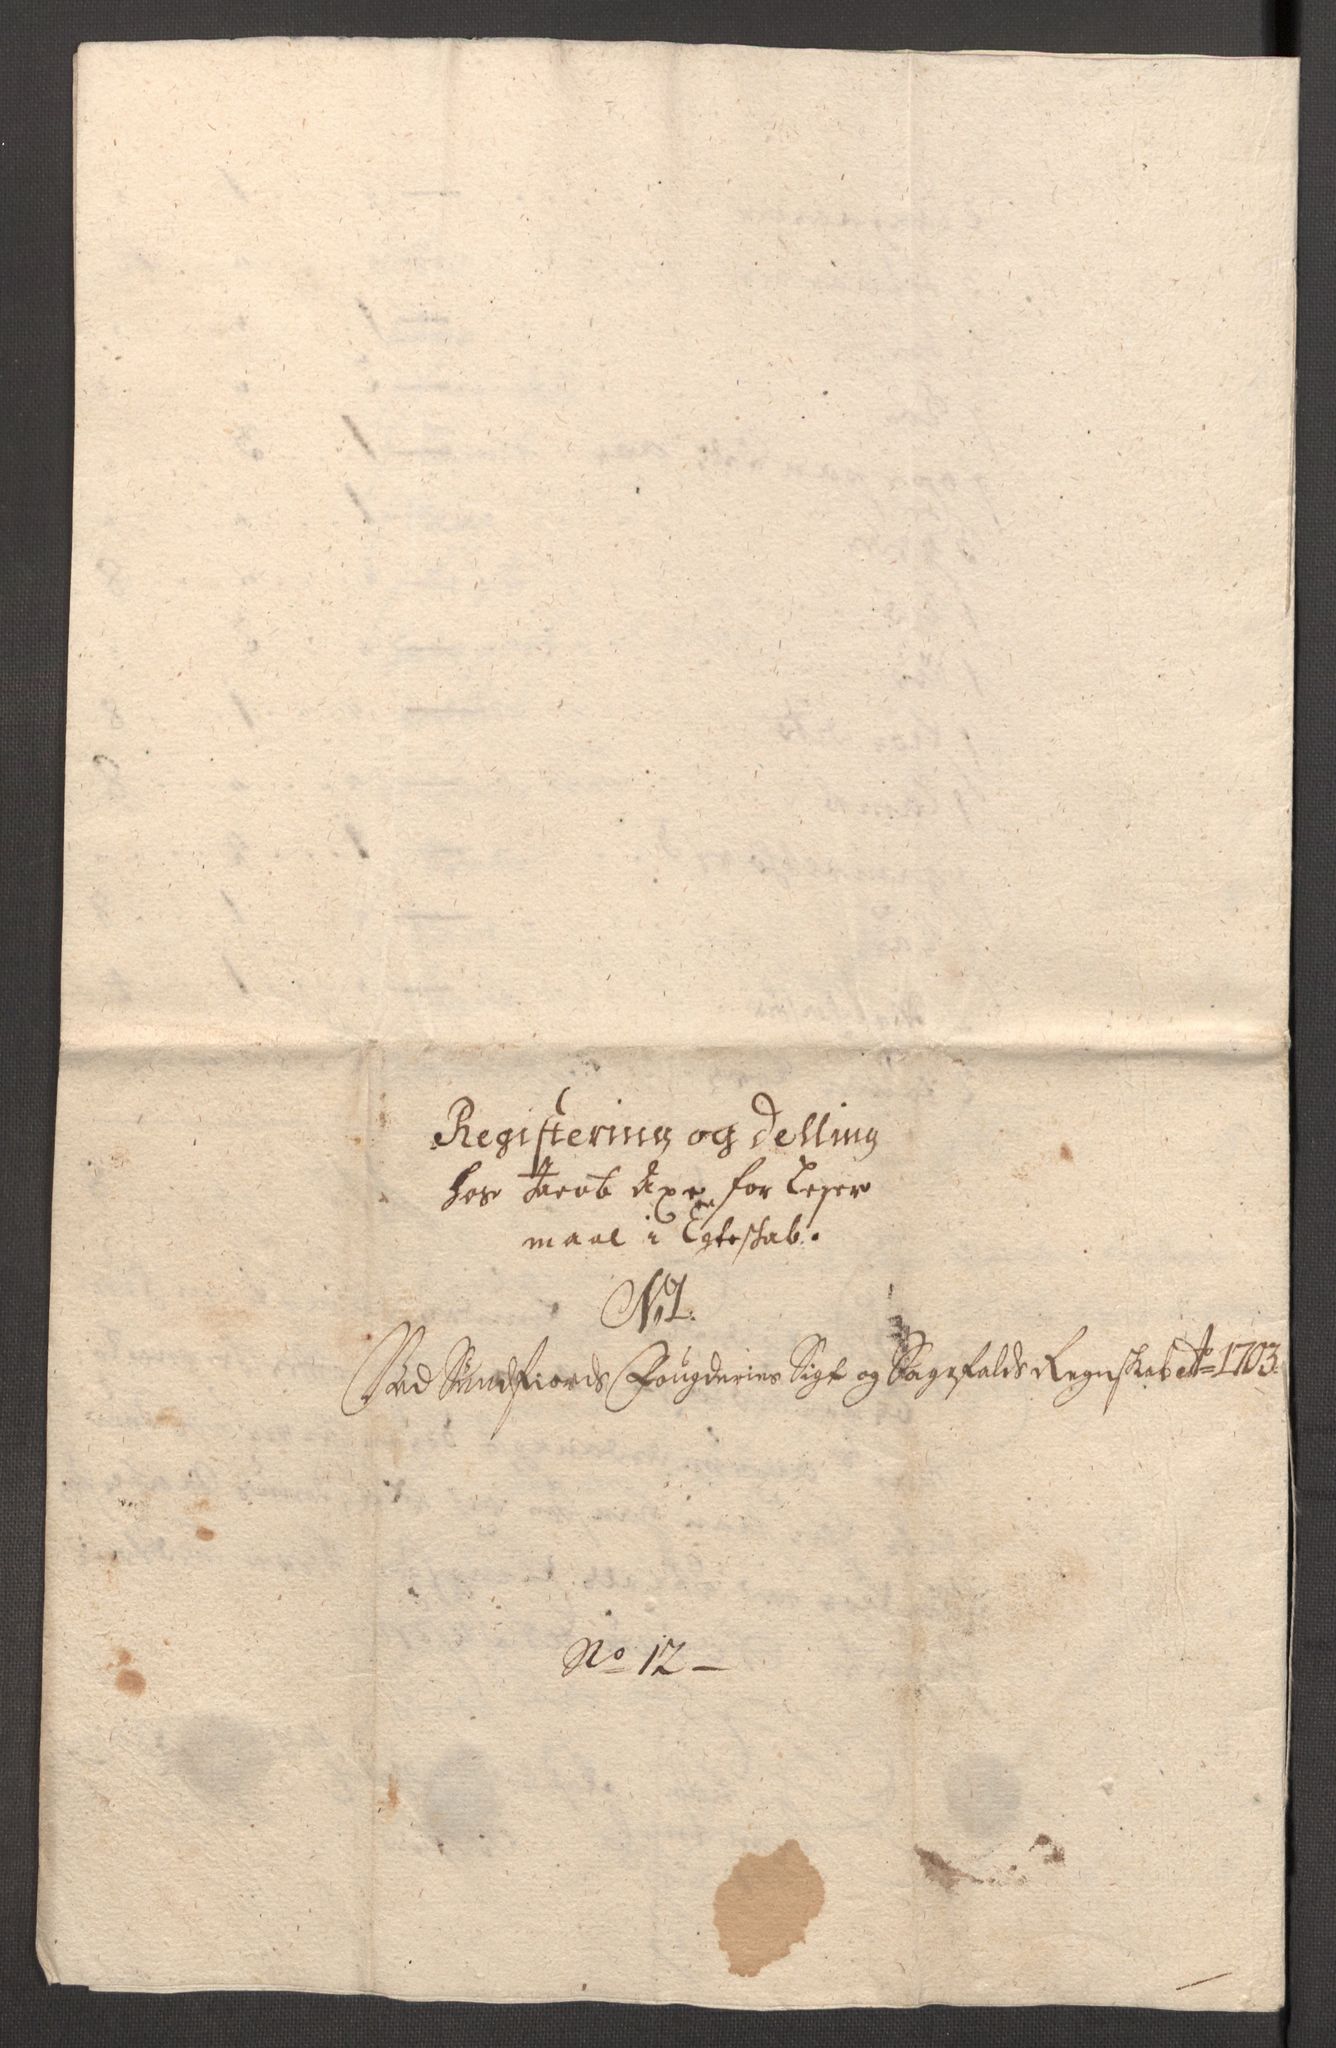 Registering og Delling
hos Jacob Axe for Leyer
maal i Egteskab.
No 1.
Ved Sundfiords Fougderies Sigt og Sagefalds Regnskab Ao 1703.
No 12